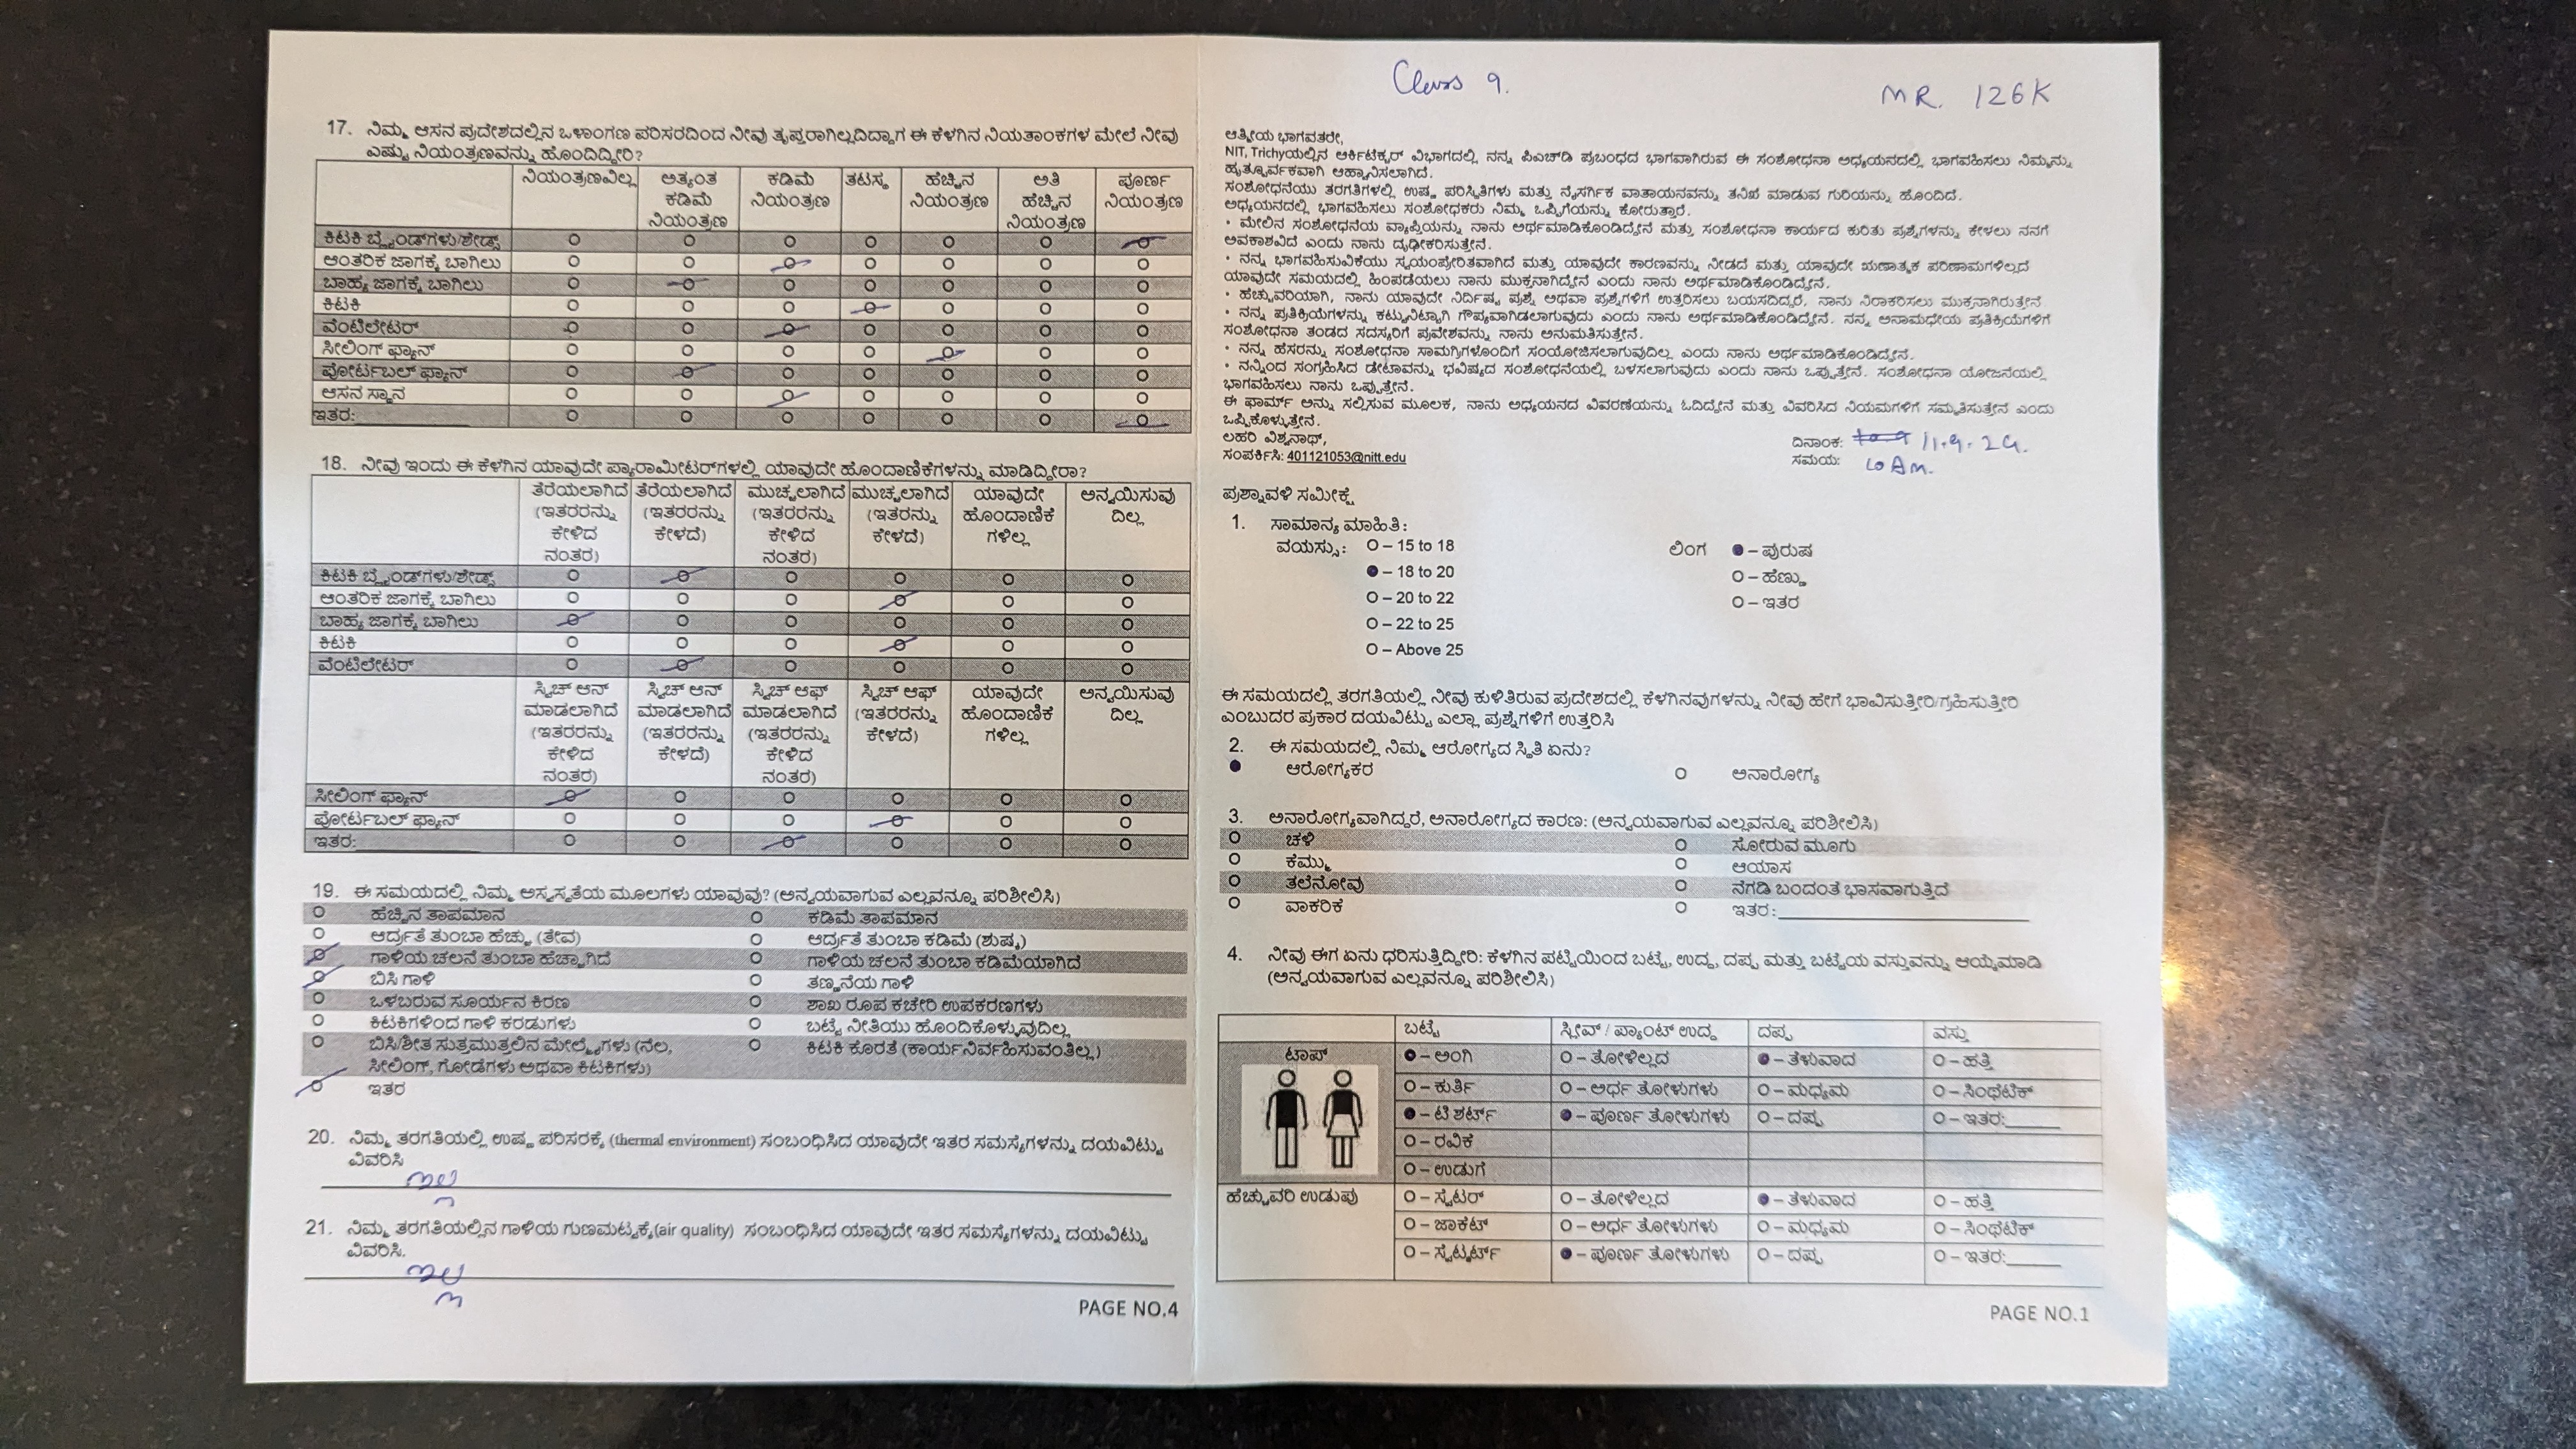 17. ನಿಮ್ಮ ಆಸನ ಪ್ರದೇಶದಲ್ಲಿನ ಒಳಾಂಗಣ ಪರಿಸರದಿಂದ ನೀವು ತೃಪ್ತರಾಗಿಲ್ಲದಿದ್ದಾಗ ಈ ಕೆಳಗಿನ ನಿಯತಾಂಕಗಳ ಮೇಲೆ ನೀವು
ಎಷ್ಟು ನಿಯಂತ್ರಣವನ್ನು ಹೊಂದಿದ್ದೀರಿ?
ನಿಯಂತ್ರಣವಿಲ್ಲ ಅತ್ಯಂತ ಕಡಿಮೆ ನಿಯಂತ್ರಣ ಕಡಿಮೆ ನಿಯಂತ್ರಣ ತಟಸ್ಥ ಹೆಚ್ಚಿನ ನಿಯಂತ್ರಣ ಅತಿ ಹೆಚ್ಚಿನ ನಿಯಂತ್ರಣ ಪೂರ್ಣ ನಿಯಂತ್ರಣ
ಕಿಟಕಿ ಬ್ಲೈಂಡ್‌ಗಳು/ಶೇಡ್ಸ್
ಆಂತರಿಕ ಜಾಗಕ್ಕೆ ಬಾಗಿಲು
ಬಾಹ್ಯ ಜಾಗಕ್ಕೆ ಬಾಗಿಲು
ಕಿಟಕಿ
ವೆಂಟಿಲೇಟರ್
ಸೀಲಿಂಗ್ ಫ್ಯಾನ್
ಪೋರ್ಟಬಲ್ ಫ್ಯಾನ್
ಆಸನ ಸ್ಥಾನ
ಇತರ:
18. ನೀವು ಇಂದು ಈ ಕೆಳಗಿನ ಯಾವುದೇ ಪ್ಯಾರಾಮೀಟರ್‌ಗಳಲ್ಲಿ ಯಾವುದೇ ಹೊಂದಾಣಿಕೆಗಳನ್ನು ಮಾಡಿದ್ದೀರಾ?
ತೆರೆಯಲಾಗಿದೆ (ಇತರರನ್ನು ಕೇಳಿದ ನಂತರ) ತೆರೆಯಲಾಗಿದೆ (ಇತರರನ್ನು ಕೇಳದೆ) ಮುಚ್ಚಲಾಗಿದೆ (ಇತರರನ್ನು ಕೇಳಿದ ನಂತರ) ಮುಚ್ಚಲಾಗಿದೆ (ಇತರರನ್ನು ಕೇಳದೆ) ಯಾವುದೇ ಹೊಂದಾಣಿಕೆ ಗಳಿಲ್ಲ ಅನ್ವಯಿಸುವು ದಿಲ್ಲ
ಕಿಟಕಿ ಬ್ಲೈಂಡ್‌ಗಳು/ಶೇಡ್ಸ್
ಆಂತರಿಕ ಜಾಗಕ್ಕೆ ಬಾಗಿಲು
ಬಾಹ್ಯ ಜಾಗಕ್ಕೆ ಬಾಗಿಲು
ಕಿಟಕಿ
ವೆಂಟಿಲೇಟರ್
ಸ್ವಿಚ್ ಆನ್ ಮಾಡಲಾಗಿದೆ (ಇತರರನ್ನು ಕೇಳಿದ ನಂತರ) ಸ್ವಿಚ್ ಆನ್ ಮಾಡಲಾಗಿದೆ (ಇತರರನ್ನು ಕೇಳದೆ) ಸ್ವಿಚ್ ಆಫ್ ಮಾಡಲಾಗಿದೆ (ಇತರರನ್ನು ಕೇಳಿದ ನಂತರ) ಸ್ವಿಚ್ ಆಫ್ (ಇತರರನ್ನು ಕೇಳದೆ) ಯಾವುದೇ ಹೊಂದಾಣಿಕೆ ಗಳಿಲ್ಲ ಅನ್ವಯಿಸುವು ದಿಲ್ಲ
ಸೀಲಿಂಗ್ ಫ್ಯಾನ್
ಪೋರ್ಟಬಲ್ ಫ್ಯಾನ್
ಇತರ:
19. ಈ ಸಮಯದಲ್ಲಿ ನಿಮ್ಮ ಅಸ್ವಸ್ಥತೆಯ ಮೂಲಗಳು ಯಾವುವು? (ಅನ್ವಯವಾಗುವ ಎಲ್ಲವನ್ನೂ ಪರಿಶೀಲಿಸಿ)
ಹೆಚ್ಚಿನ ತಾಪಮಾನ ಕಡಿಮೆ ತಾಪಮಾನ
ಆರ್ದ್ರತೆ ತುಂಬಾ ಹೆಚ್ಚು (ತೇವ) ಆರ್ದ್ರತೆ ತುಂಬಾ ಕಡಿಮೆ (ಶುಷ್ಕ)
ಗಾಳಿಯ ಚಲನೆ ತುಂಬಾ ಹೆಚ್ಚಾಗಿದೆ ಗಾಳಿಯ ಚಲನೆ ತುಂಬಾ ಕಡಿಮೆಯಾಗಿದೆ
ಬಿಸಿ ಗಾಳಿ ತಣ್ಣನೆಯ ಗಾಳಿ
ಒಳಬರುವ ಸೂರ್ಯನ ಕಿರಣ ಶಾಖ ರೂಪ ಕಚೇರಿ ಉಪಕರಣಗಳು
ಕಿಟಕಿಗಳಿಂದ ಗಾಳಿ ಕರಡುಗಳು ಬಟ್ಟೆ ನೀತಿಯು ಹೊಂದಿಕೊಳ್ಳುವುದಿಲ್ಲ
ಬಿಸಿ/ಶೀತ ಸುತ್ತಮುತ್ತಲಿನ ಮೇಲ್ಮೈಗಳು (ನೆಲ, ಕಿಟಕಿ ಕೊರತೆ (ಕಾರ್ಯನಿರ್ವಹಿಸುವಂತಿಲ್ಲ)
ಸೀಲಿಂಗ್, ಗೋಡೆಗಳು ಅಥವಾ ಕಿಟಕಿಗಳು)
ಇತರ
20. ನಿಮ್ಮ ತರಗತಿಯಲ್ಲಿ ಉಷ್ಣ ಪರಿಸರಕ್ಕೆ (thermal environment) ಸಂಬಂಧಿಸಿದ ಯಾವುದೇ ಇತರ ಸಮಸ್ಯೆಗಳನ್ನು ದಯವಿಟ್ಟು
ವಿವರಿಸಿ
ಇಲ್ಲ
21. ನಿಮ್ಮ ತರಗತಿಯಲ್ಲಿನ ಗಾಳಿಯ ಗುಣಮಟ್ಟಕ್ಕೆ(air quality) ಸಂಬಂಧಿಸಿದ ಯಾವುದೇ ಇತರ ಸಮಸ್ಯೆಗಳನ್ನು ದಯವಿಟ್ಟು
ವಿವರಿಸಿ.
ಇಲ್ಲ
PAGE NO.4
Class 9.
MR. 126K
ಆತ್ಮೀಯ ಭಾಗವತರೇ,
NIT, Trichyಯಲ್ಲಿನ ಆರ್ಕಿಟೆಕ್ಚರ್ ವಿಭಾಗದಲ್ಲಿ ನನ್ನ ಪಿಎಚ್‌ಡಿ ಪ್ರಬಂಧದ ಭಾಗವಾಗಿರುವ ಈ ಸಂಶೋಧನಾ ಅಧ್ಯಯನದಲ್ಲಿ ಭಾಗವಹಿಸಲು ನಿಮ್ಮನ್ನು
ಹೃತ್ಪೂರ್ವಕವಾಗಿ ಆಹ್ವಾನಿಸಲಾಗಿದೆ.
ಸಂಶೋಧನೆಯು ತರಗತಿಗಳಲ್ಲಿ ಉಷ್ಣ ಪರಿಸ್ಥಿತಿಗಳು ಮತ್ತು ನೈಸರ್ಗಿಕ ವಾತಾಯನವನ್ನು ತನಿಖೆ ಮಾಡುವ ಗುರಿಯನ್ನು ಹೊಂದಿದೆ.
ಅಧ್ಯಯನದಲ್ಲಿ ಭಾಗವಹಿಸಲು ಸಂಶೋಧಕರು ನಿಮ್ಮ ಒಪ್ಪಿಗೆಯನ್ನು ಕೋರುತ್ತಾರೆ.
• ಮೇಲಿನ ಸಂಶೋಧನೆಯ ವ್ಯಾಪ್ತಿಯನ್ನು ನಾನು ಅರ್ಥಮಾಡಿಕೊಂಡಿದ್ದೇನೆ ಮತ್ತು ಸಂಶೋಧನಾ ಕಾರ್ಯದ ಕುರಿತು ಪ್ರಶ್ನೆಗಳನ್ನು ಕೇಳಲು ನನಗೆ
ಅವಕಾಶವಿದೆ ಎಂದು ನಾನು ದೃಢೀಕರಿಸುತ್ತೇನೆ.
• ನನ್ನ ಭಾಗವಹಿಸುವಿಕೆಯು ಸ್ವಯಂಪ್ರೇರಿತವಾಗಿದೆ ಮತ್ತು ಯಾವುದೇ ಕಾರಣವನ್ನು ನೀಡದೆ ಮತ್ತು ಯಾವುದೇ ಋಣಾತ್ಮಕ ಪರಿಣಾಮಗಳಿಲ್ಲದೆ
ಯಾವುದೇ ಸಮಯದಲ್ಲಿ ಹಿಂಪಡೆಯಲು ನಾನು ಮುಕ್ತನಾಗಿದ್ದೇನೆ ಎಂದು ನಾನು ಅರ್ಥಮಾಡಿಕೊಂಡಿದ್ದೇನೆ.
• ಹೆಚ್ಚುವರಿಯಾಗಿ, ನಾನು ಯಾವುದೇ ನಿರ್ದಿಷ್ಟ ಪ್ರಶ್ನೆ ಅಥವಾ ಪ್ರಶ್ನೆಗಳಿಗೆ ಉತ್ತರಿಸಲು ಬಯಸದಿದ್ದರೆ, ನಾನು ನಿರಾಕರಿಸಲು ಮುಕ್ತನಾಗಿರುತ್ತೇನೆ
• ನನ್ನ ಪ್ರತಿಕ್ರಿಯೆಗಳನ್ನು ಕಟ್ಟುನಿಟ್ಟಾಗಿ ಗೌಪ್ಯವಾಗಿಡಲಾಗುವುದು ಎಂದು ನಾನು ಅರ್ಥಮಾಡಿಕೊಂಡಿದ್ದೇನೆ. ನನ್ನ ಅನಾಮಧೇಯ ಪ್ರತಿಕ್ರಿಯೆಗಳಿಗೆ
ಸಂಶೋಧನಾ ತಂಡದ ಸದಸ್ಯರಿಗೆ ಪ್ರವೇಶವನ್ನು ನಾನು ಅನುಮತಿಸುತ್ತೇನೆ.
• ನನ್ನ ಹೆಸರನ್ನು ಸಂಶೋಧನಾ ಸಾಮಗ್ರಿಗಳೊಂದಿಗೆ ಸಂಯೋಜಿಸಲಾಗುವುದಿಲ್ಲ ಎಂದು ನಾನು ಅರ್ಥಮಾಡಿಕೊಂಡಿದ್ದೇನೆ.
• ನನ್ನಿಂದ ಸಂಗ್ರಹಿಸಿದ ಡೇಟಾವನ್ನು ಭವಿಷ್ಯದ ಸಂಶೋಧನೆಯಲ್ಲಿ ಬಳಸಲಾಗುವುದು ಎಂದು ನಾನು ಒಪ್ಪುತ್ತೇನೆ. ಸಂಶೋಧನಾ ಯೋಜನೆಯಲ್ಲಿ
ಭಾಗವಹಿಸಲು ನಾನು ಒಪ್ಪುತ್ತೇನೆ.
ಈ ಫಾರ್ಮ್ ಅನ್ನು ಸಲ್ಲಿಸುವ ಮೂಲಕ, ನಾನು ಅಧ್ಯಯನದ ವಿವರಣೆಯನ್ನು ಓದಿದ್ದೇನೆ ಮತ್ತು ವಿವರಿಸಿದ ನಿಯಮಗಳಿಗೆ ಸಮ್ಮತಿಸುತ್ತೇನೆ ಎಂದು
ಒಪ್ಪಿಕೊಳ್ಳುತ್ತೇನೆ.
ಲಹರಿ ವಿಶ್ವನಾಥ್,
ಸಂಪರ್ಕಿಸಿ: 401121053@nitt.edu
ದಿನಾಂಕ: 11.9.24.
ಸಮಯ: 10 Am.
ಪ್ರಶ್ನಾವಳಿ ಸಮೀಕ್ಷೆ
1. ಸಾಮಾನ್ಯ ಮಾಹಿತಿ:
ವಯಸ್ಸು: O – 15 to 18 ಲಿಂಗ ● – ಪುರುಷ
● – 18 to 20 O – ಹೆಣ್ಣು
O – 20 to 22 O – ಇತರ
O – 22 to 25
O – Above 25
ಈ ಸಮಯದಲ್ಲಿ ತರಗತಿಯಲ್ಲಿ ನೀವು ಕುಳಿತಿರುವ ಪ್ರದೇಶದಲ್ಲಿ ಕೆಳಗಿನವುಗಳನ್ನು ನೀವು ಹೇಗೆ ಭಾವಿಸುತ್ತೀರಿ/ಗ್ರಹಿಸುತ್ತೀರಿ
ಎಂಬುದರ ಪ್ರಕಾರ ದಯವಿಟ್ಟು ಎಲ್ಲಾ ಪ್ರಶ್ನೆಗಳಿಗೆ ಉತ್ತರಿಸಿ
2. ಈ ಸಮಯದಲ್ಲಿ ನಿಮ್ಮ ಆರೋಗ್ಯದ ಸ್ಥಿತಿ ಏನು?
● ಆರೋಗ್ಯಕರ O ಅನಾರೋಗ್ಯ
3. ಅನಾರೋಗ್ಯವಾಗಿದ್ದರೆ, ಅನಾರೋಗ್ಯದ ಕಾರಣ: (ಅನ್ವಯವಾಗುವ ಎಲ್ಲವನ್ನೂ ಪರಿಶೀಲಿಸಿ)
O ಚಳಿ O ಸೋರುವ ಮೂಗು
O ಕೆಮ್ಮು O ಆಯಾಸ
O ತಲೆನೋವು O ನೆಗಡಿ ಬಂದಂತೆ ಭಾಸವಾಗುತ್ತಿದೆ
O ವಾಕರಿಕೆ O ಇತರ:
4. ನೀವು ಈಗ ಏನು ಧರಿಸುತ್ತಿದ್ದೀರಿ: ಕೆಳಗಿನ ಪಟ್ಟಿಯಿಂದ ಬಟ್ಟೆ, ಉದ್ದ, ದಪ್ಪ ಮತ್ತು ಬಟ್ಟೆಯ ವಸ್ತುವನ್ನು ಆಯ್ಕೆಮಾಡಿ
(ಅನ್ವಯವಾಗುವ ಎಲ್ಲವನ್ನೂ ಪರಿಶೀಲಿಸಿ)
ಬಟ್ಟೆ ಸ್ಲೀವ್ / ಪ್ಯಾಂಟ್ ಉದ್ದ ದಪ್ಪ ವಸ್ತು
ಟಾಪ್ ● – ಅಂಗಿ O – ತೋಳಿಲ್ಲದ ● – ತೆಳುವಾದ O – ಹತ್ತಿ
O – ಕುರ್ತಿ O – ಅರ್ಧ ತೋಳುಗಳು O – ಮಧ್ಯಮ O – ಸಿಂಥೆಟಿಕ್
● – ಟಿ ಶರ್ಟ್ ● – ಪೂರ್ಣ ತೋಳುಗಳು O – ದಪ್ಪ O – ಇತರ:
O – ರವಿಕೆ
O – ಉಡುಗೆ
ಹೆಚ್ಚುವರಿ ಉಡುಪು O – ಸ್ವೆಟರ್ O – ತೋಳಿಲ್ಲದ ● – ತೆಳುವಾದ O – ಹತ್ತಿ
O – ಜಾಕೆಟ್ O – ಅರ್ಧ ತೋಳುಗಳು O – ಮಧ್ಯಮ O – ಸಿಂಥೆಟಿಕ್
O – ಸ್ವೆಟ್ಶರ್ಟ್ ● – ಪೂರ್ಣ ತೋಳುಗಳು O – ದಪ್ಪ O – ಇತರ:
PAGE NO.1